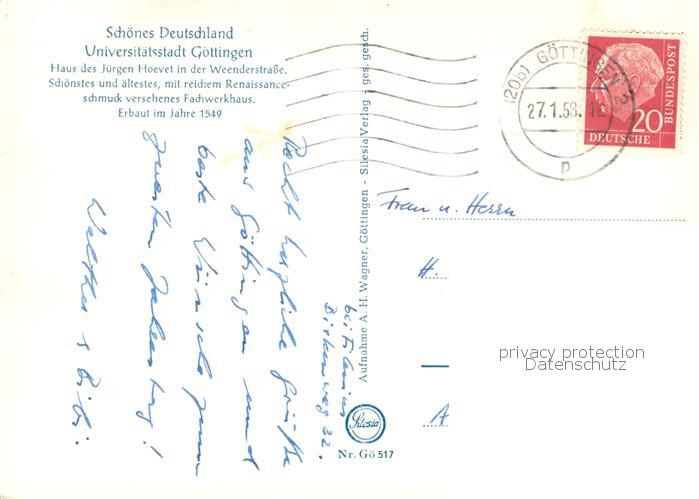 Schönes Deutschland
Universitätsstadt Göttingen
Haus des Jürgen Hoevet in der Weenderstraße.
Schönstes und ältestes, mit reichem Renaissance-
schmuck versehenes Fachwerkhaus.
Erbaut im Jahre 1549
Recht herzliche Grüße
aus Göttingen und
beste Wünsche zum
zweiten Jahrestag!
Walther
bei
Birkenweg 22.
Aufnahme A. H. Wagner, Göttingen - Silesia Verlag - ges. gesch.
Silesia
Nr. Gö 517
(20b) GÖTTINGEN 2
27.1.58. 12
p
20
DEUTSCHE
BUNDESPOST
Frau u. Herrn
H.
A
privacy protection
Datenschutz